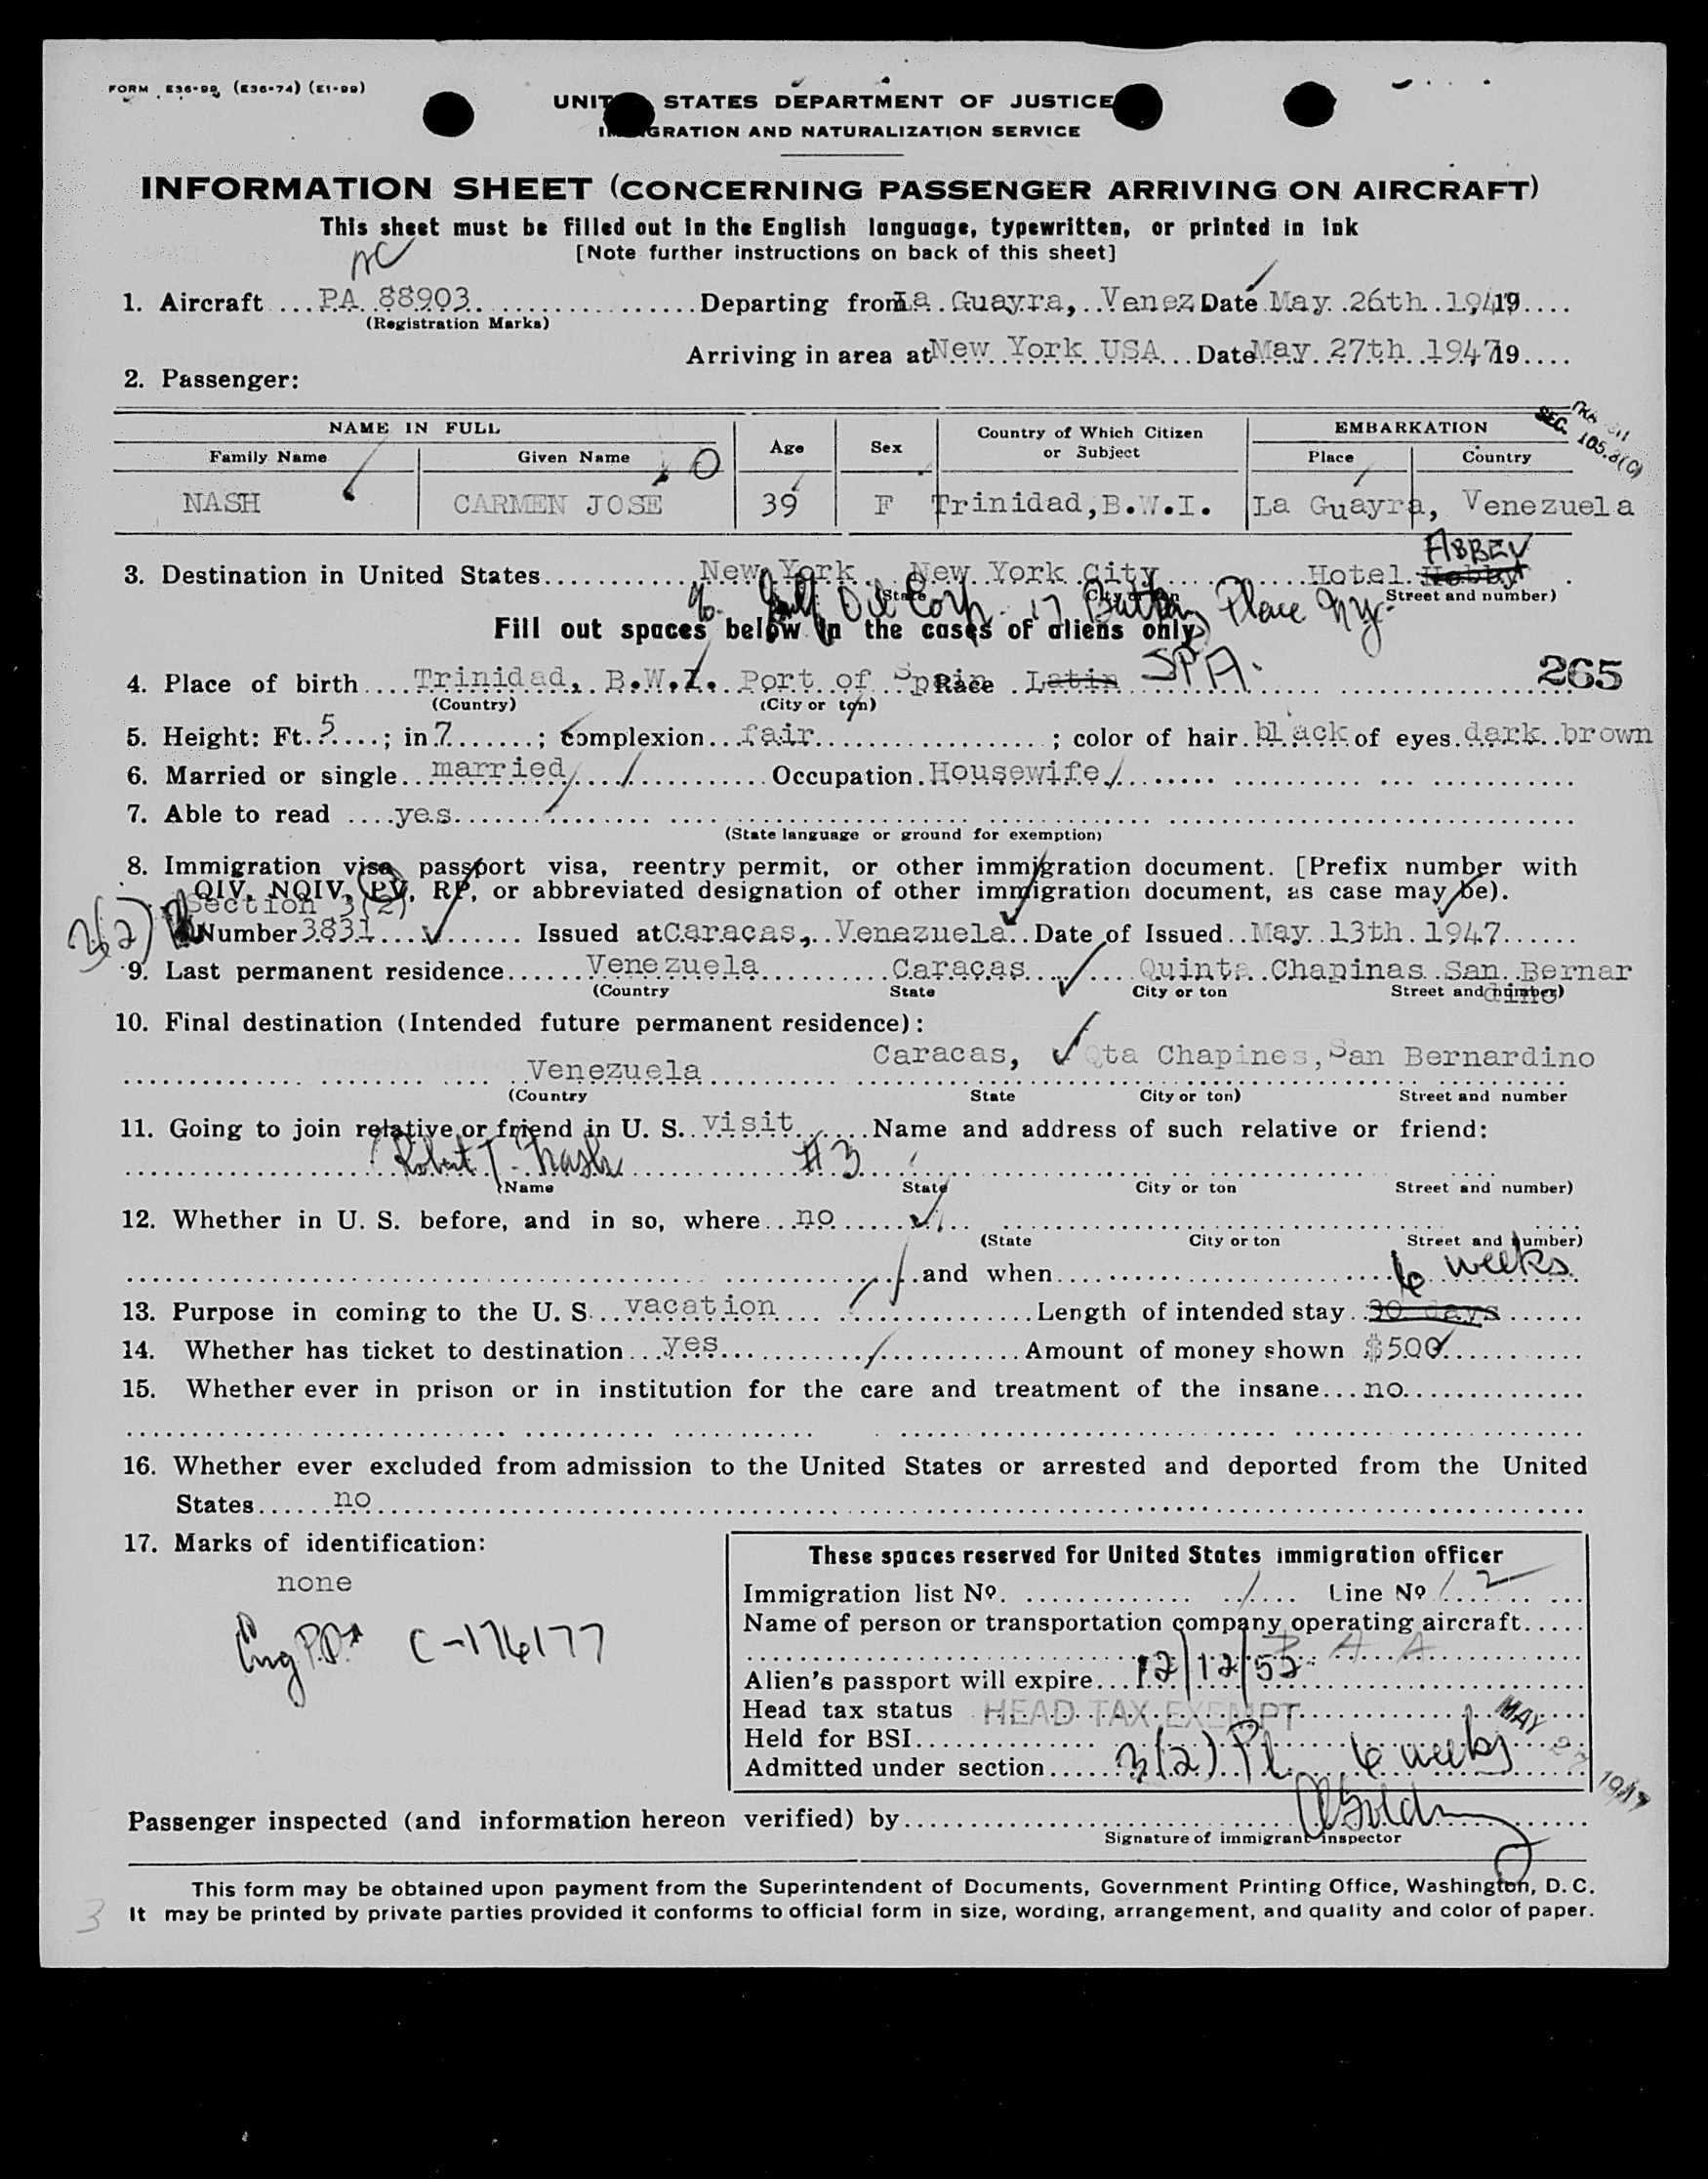 FORM E36-99 (E36-74) (E1-99)
UNITED STATES DEPARTMENT OF JUSTICE
IMMIGRATION AND NATURALIZATION SERVICE
INFORMATION SHEET (CONCERNING PASSENGER ARRIVING ON AIRCRAFT)
This sheet must be filled out in the English language, typewritten, or printed in ink
[Note further instructions on back of this sheet]
NC
1. Aircraft....PA 88903...Departing from La Guayra, Venez Date May 26th 1947 19....
(Registration Marks)
Arriving in area at New York USA...Date May 27th 1947 19....
2. Passenger:
NAME IN FULL Age Sex Country of Which Citizen or Subject EMBARKATION SEC. 105.3(C)
Family Name Given Name Place Country
NASH CARMEN JOSE 39 F Trinidad,B.W.I. La Guayra, Venezuela
ABBEY
3. Destination in United States...New York New York City...Hotel
State City or ton Street and number)
% Gulf Oil Corp. 17 Battery Place N.Y.
Fill out spaces below in the cases of aliens only)
4. Place of birth....Trinidad, B.W.I. Port of Spain Race Latin SPA. 265
(Country) (City or ton)
5. Height: Ft. 5....; in 7.......; complexion...fair...; color of hair black of eyes dark brown
6. Married or single..married...Occupation.Housewife
7. Able to read ....yes
(State language or ground for exemption)
8. Immigration visa, passport visa, reentry permit, or other immigration document. [Prefix number with
QIV, NQIV, PV, RP, or abbreviated designation of other immigration document, as case may be).
Section 3(2)
3(2) Number 3831... Issued at Caracas, Venezuela..Date of Issued..May 13th 1947
9. Last permanent residence......Venezuela...Caracas...Quinta Chapinas San Bernar
dino
(Country State City or ton Street and number)
10. Final destination (Intended future permanent residence):
Venezuela Caracas, Qta Chapines,San Bernardino
(Country State City or ton) Street and number
11. Going to join relative or friend in U. S..visit...Name and address of such relative or friend:
Robert T. Nash #3
(Name State City or ton Street and number)
12. Whether in U. S. before, and in so, where...no
(State City or ton Street and number)
and when... 6 weeks
13. Purpose in coming to the U. S...vacation...Length of intended stay..30 days
14. Whether has ticket to destination...yes...Amount of money shown $500
15. Whether ever in prison or in institution for the care and treatment of the insane...no
16. Whether ever excluded from admission to the United States or arrested and deported from the United
States......no
17. Marks of identification:
none
C-176177
These spaces reserved for United States immigration officer
Immigration list No. ... Line No 2
Name of person or transportation company operating aircraft.....
P A A
Alien's passport will expire...12/12/52
Head tax status HEAD TAX EXEMPT
Held for BSI
Admitted under section......3(2) Pl. 6 weeks
MAY 27 1947
Passenger inspected (and information hereon verified) by
Signature of immigrant inspector
This form may be obtained upon payment from the Superintendent of Documents, Government Printing Office, Washington, D. C.
It may be printed by private parties provided it conforms to official form in size, wording, arrangement, and quality and color of paper.
3